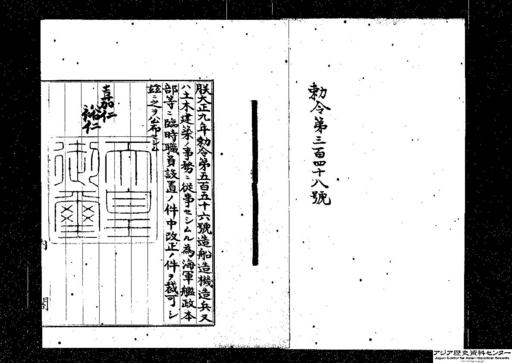 勅令第三百四十八號
朕大正九年勅令第五百五十六號造船造機造兵又
ハ土木建築ノ事務ニ從事セシムル為海軍艦政本
部等ニ臨時職員設置ノ件中改正ノ件ヲ裁可シ
茲ニ之ヲ公布セシム
嘉仁
裕仁
天皇
御璽
内閣
アジア歴史資料センター
Japan Center for Asian Historical Records